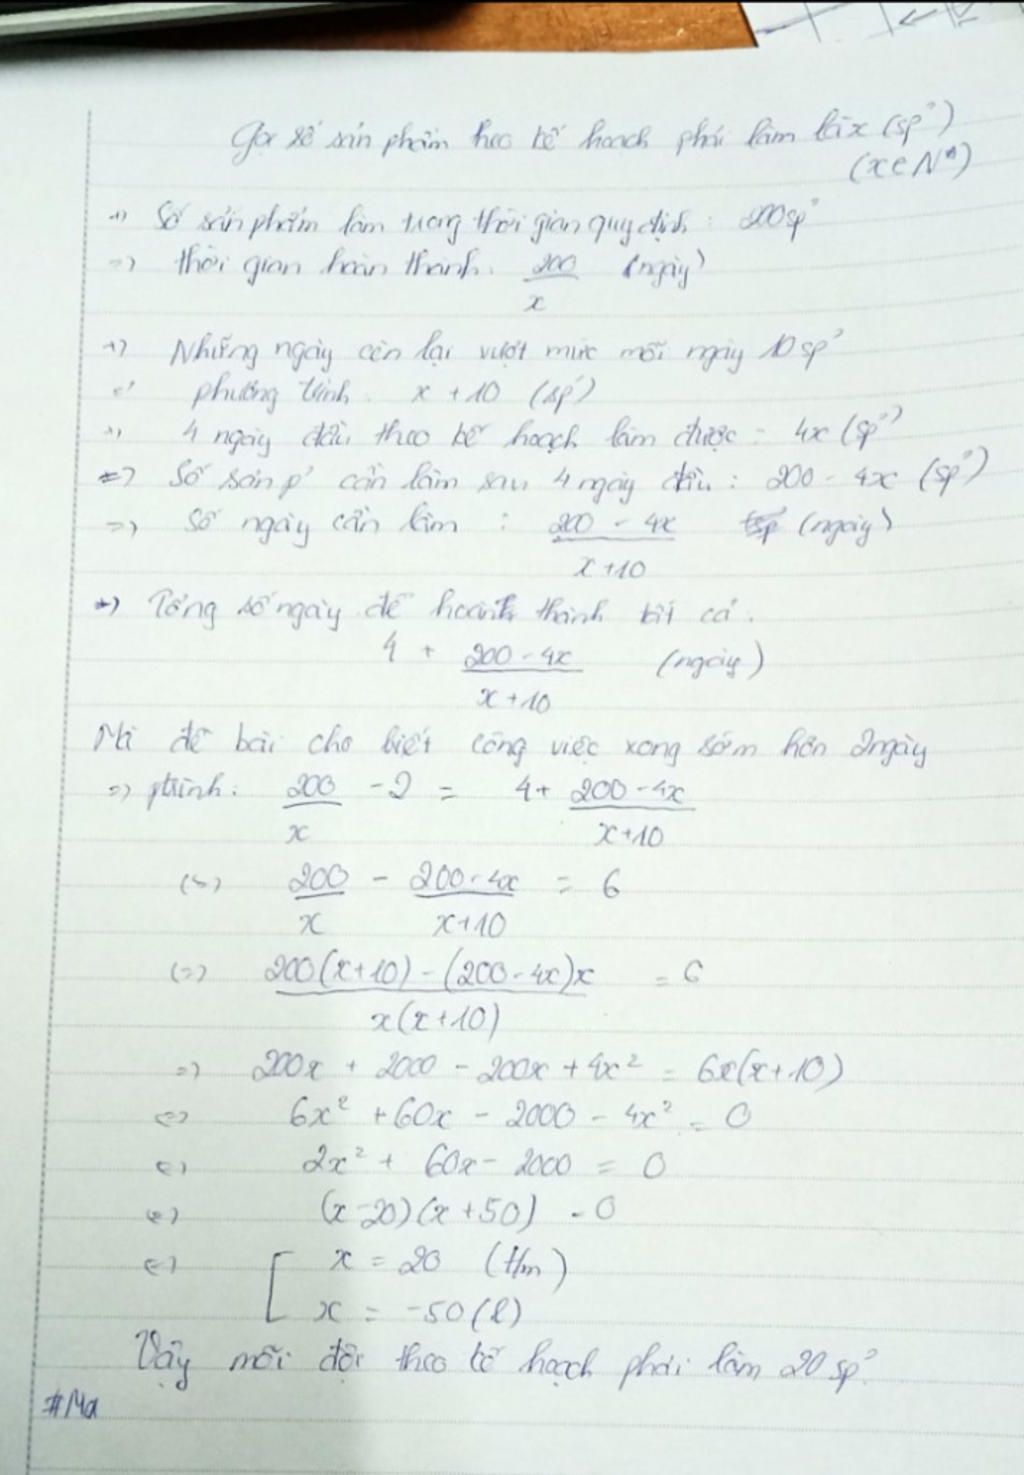 Gọi số sản phẩm theo kế hoạch phải làm là x (sp')
(x∈N*)
+) Số sản phẩm làm trong thời gian quy định : 200sp'
=> thời gian hoàn thành. 200/x (ngày)
+) Những ngày còn lại vượt mức mỗi ngày 10sp'
phương trình. x + 10 (sp')
+) 4 ngày đầu theo kế hoạch làm được = 4x (sp')
=> Số sản p' cần làm sau 4 ngày đầu : 200 - 4x (sp')
=> Số ngày cần làm : (200 - 4x)/(x+10) (ngày)
=> Tổng số ngày để hoành thành tất cả.
4 + (200-4x)/(x+10) (ngày)
Mà đề bài cho biết công việc xong sớm hơn 2ngày
=> ptrình: 200/x - 2 = 4+ (200-4x)/(x+10)
(=) 200/x - (200-4x)/(x+10) = 6
(=) (200(x+10) - (200-4x)x)/(x(x+10)) = 6
=> 200x + 2000 - 200x + 4x² = 6x(x+10)
(=) 6x² + 60x - 2000 - 4x² = 0
(=) 2x² + 60x - 2000 = 0
(=) (x-20)(x+50) = 0
(=) [ x = 20 (t/m)
x = -50 (l)
Vậy mỗi đội theo kế hoạch phải làm 20 sp'.
#Ma